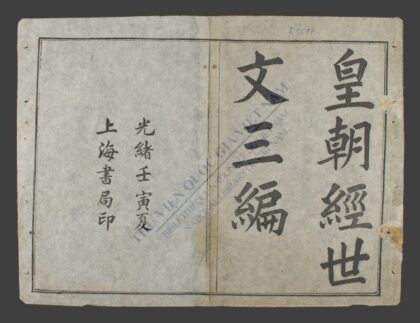 皇朝經世
文三編
光緒壬寅夏
上海書局印
THƯ VIỆN QUỐC GIA VIỆT NAM